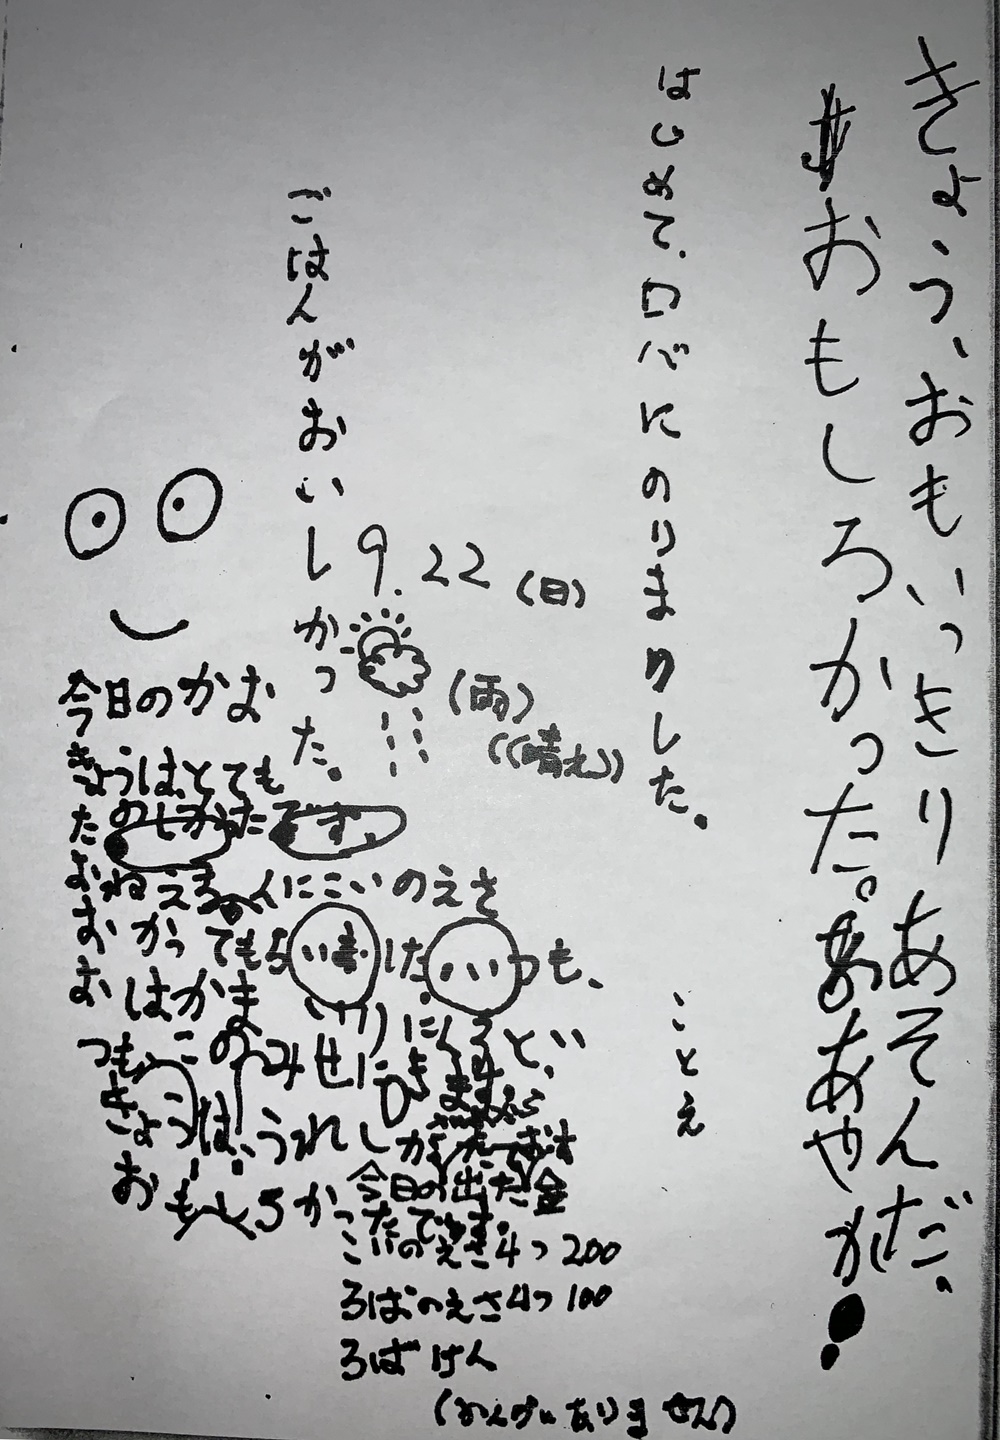 きょう、おもいっきりあそんだ。
おもしろかった。 あやが
はじめて、ロバにのりました。 ことえ
ごはんがおいしかった。
9.22(日)
(雨)
((晴れ))
今日のかお
きょうは、とても
たのしかったです。
おねえちゃんにこいのえさ
おかってもらいました。いつも、
おはかまいりにくると、い
つも、このみせにきます
きょうは、うれし
おもしろかったです。
今日の出た金
こいのえさ4つ 200
ろばのえさ4つ 100
ろばけん